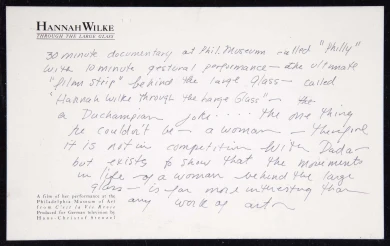 HANNAH WILKE
THROUGH THE LARGE GLASS
30 minute documentary at Phil. Museum called "Philly"
with 10 minute gestural performance — the ultimate
"film strip" behind the large Glass — called
"Hannah Wilke through the Large Glass" — the
a Duchampian joke.... the one thing
he couldn't be — a woman — therefore
it is not in competition with Dada
but exists to show that the movements
in life of a woman behind the large
glass — is far more interesting than
any work of art
A film of her performance at the
Philadelphia Museum of Art
from C'est la Vie Rrose
Produced for German television by
Hans-Christof Stenzel